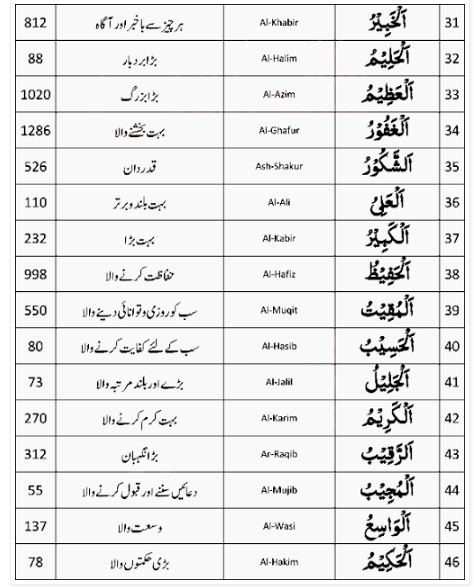 31 اَلْخَبِيْرُ Al-Khabir ہر چیز سے باخبر اور آگاہ 812
32 اَلْحَلِيْمُ Al-Halim بڑا بردبار 88
33 اَلْعَظِيْمُ Al-Azim بڑا بزرگ 1020
34 اَلْغَفُوْرُ Al-Ghafur بہت بخشنے والا 1286
35 اَلشَّكُوْرُ Ash-Shakur قدردان 526
36 اَلْعَلِيُّ Al-Ali بہت بلند و برتر 110
37 اَلْكَبِيْرُ Al-Kabir بہت بڑا 232
38 اَلْحَفِيْظُ Al-Hafiz حفاظت کرنے والا 998
39 اَلْمُقِيْتُ Al-Muqit سب کو روزی و توانائی دینے والا 550
40 اَلْحَسِيْبُ Al-Hasib سب کے لئے کفایت کرنے والا 80
41 اَلْجَلِيْلُ Al-Jalil بڑے اور بلند مرتبہ والا 73
42 اَلْكَرِيْمُ Al-Karim بہت کرم کرنے والا 270
43 اَلرَّقِيْبُ Ar-Raqib بڑا نگہبان 312
44 اَلْمُجِيْبُ Al-Mujib دعائیں سننے اور قبول کرنے والا 55
45 اَلْوَاسِعُ Al-Wasi وسعت والا 137
46 اَلْحَكِيْمُ Al-Hakim بڑی حکمتوں والا 78